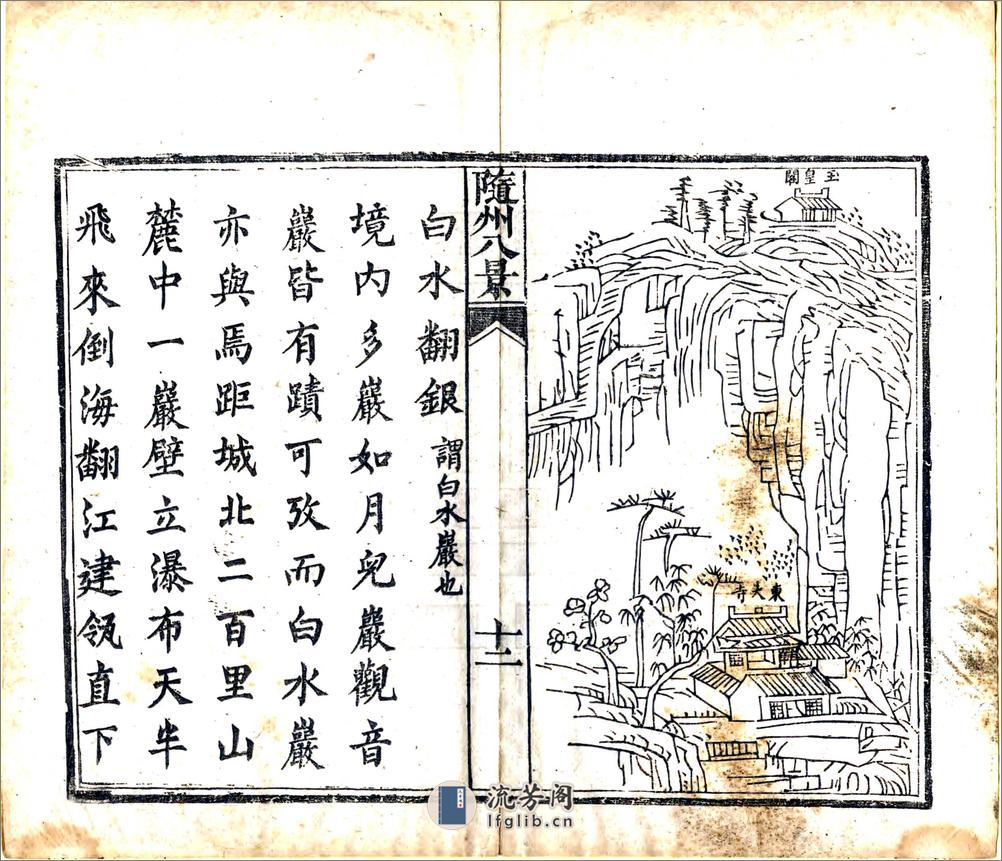 玉皇閣
東尖寺
隨州八景
十二
白水翻銀 謂白水巖也
境内多巖如月皃巖觀音
巖皆有蹟可攷而白水巖
亦與焉距城北二百里山
麓中一巖壁立瀑布天半
飛來倒海翻江建瓴直下
流芳阁
lfglib.cn